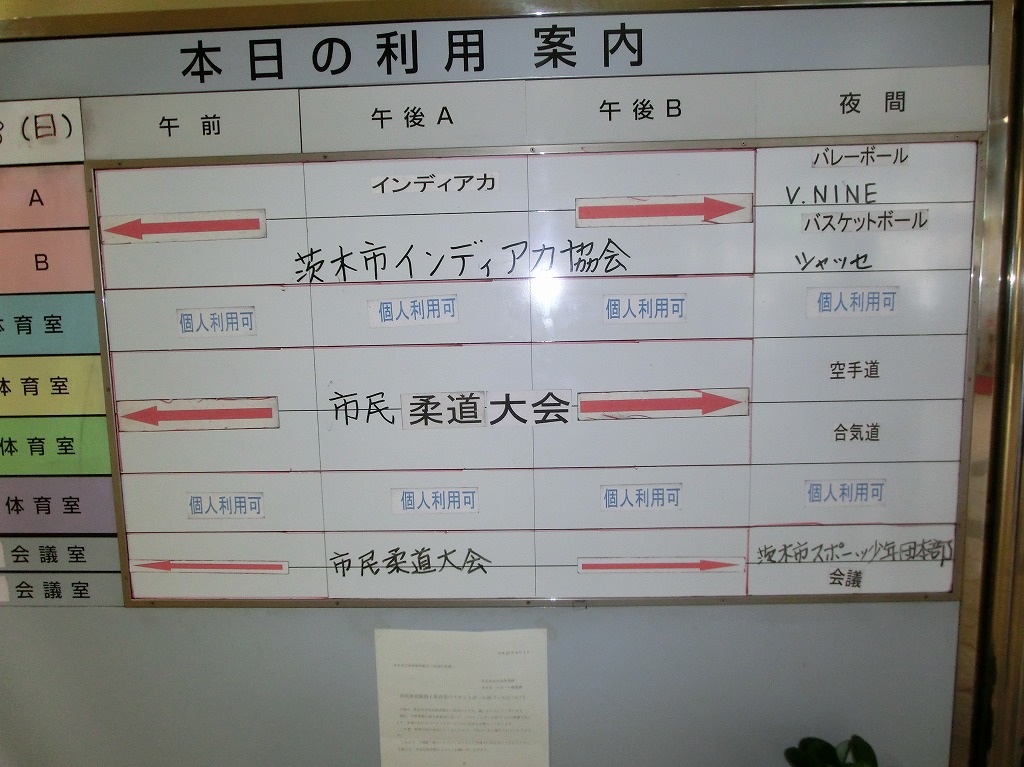 本日の利用案内
(日) 午前 午後A 午後B 夜間
A インディアカ バレーボール
V.NINE
バスケットボール
B 茨木市インディアカ協会 ツャッセ
体育室 個人利用可 個人利用可 個人利用可 個人利用可
体育室 空手道
市民柔道大会
体育室 合気道
体育室 個人利用可 個人利用可 個人利用可 個人利用可
会議室 市民柔道大会 茨木市スポーツ少年団本部
会議室 会議